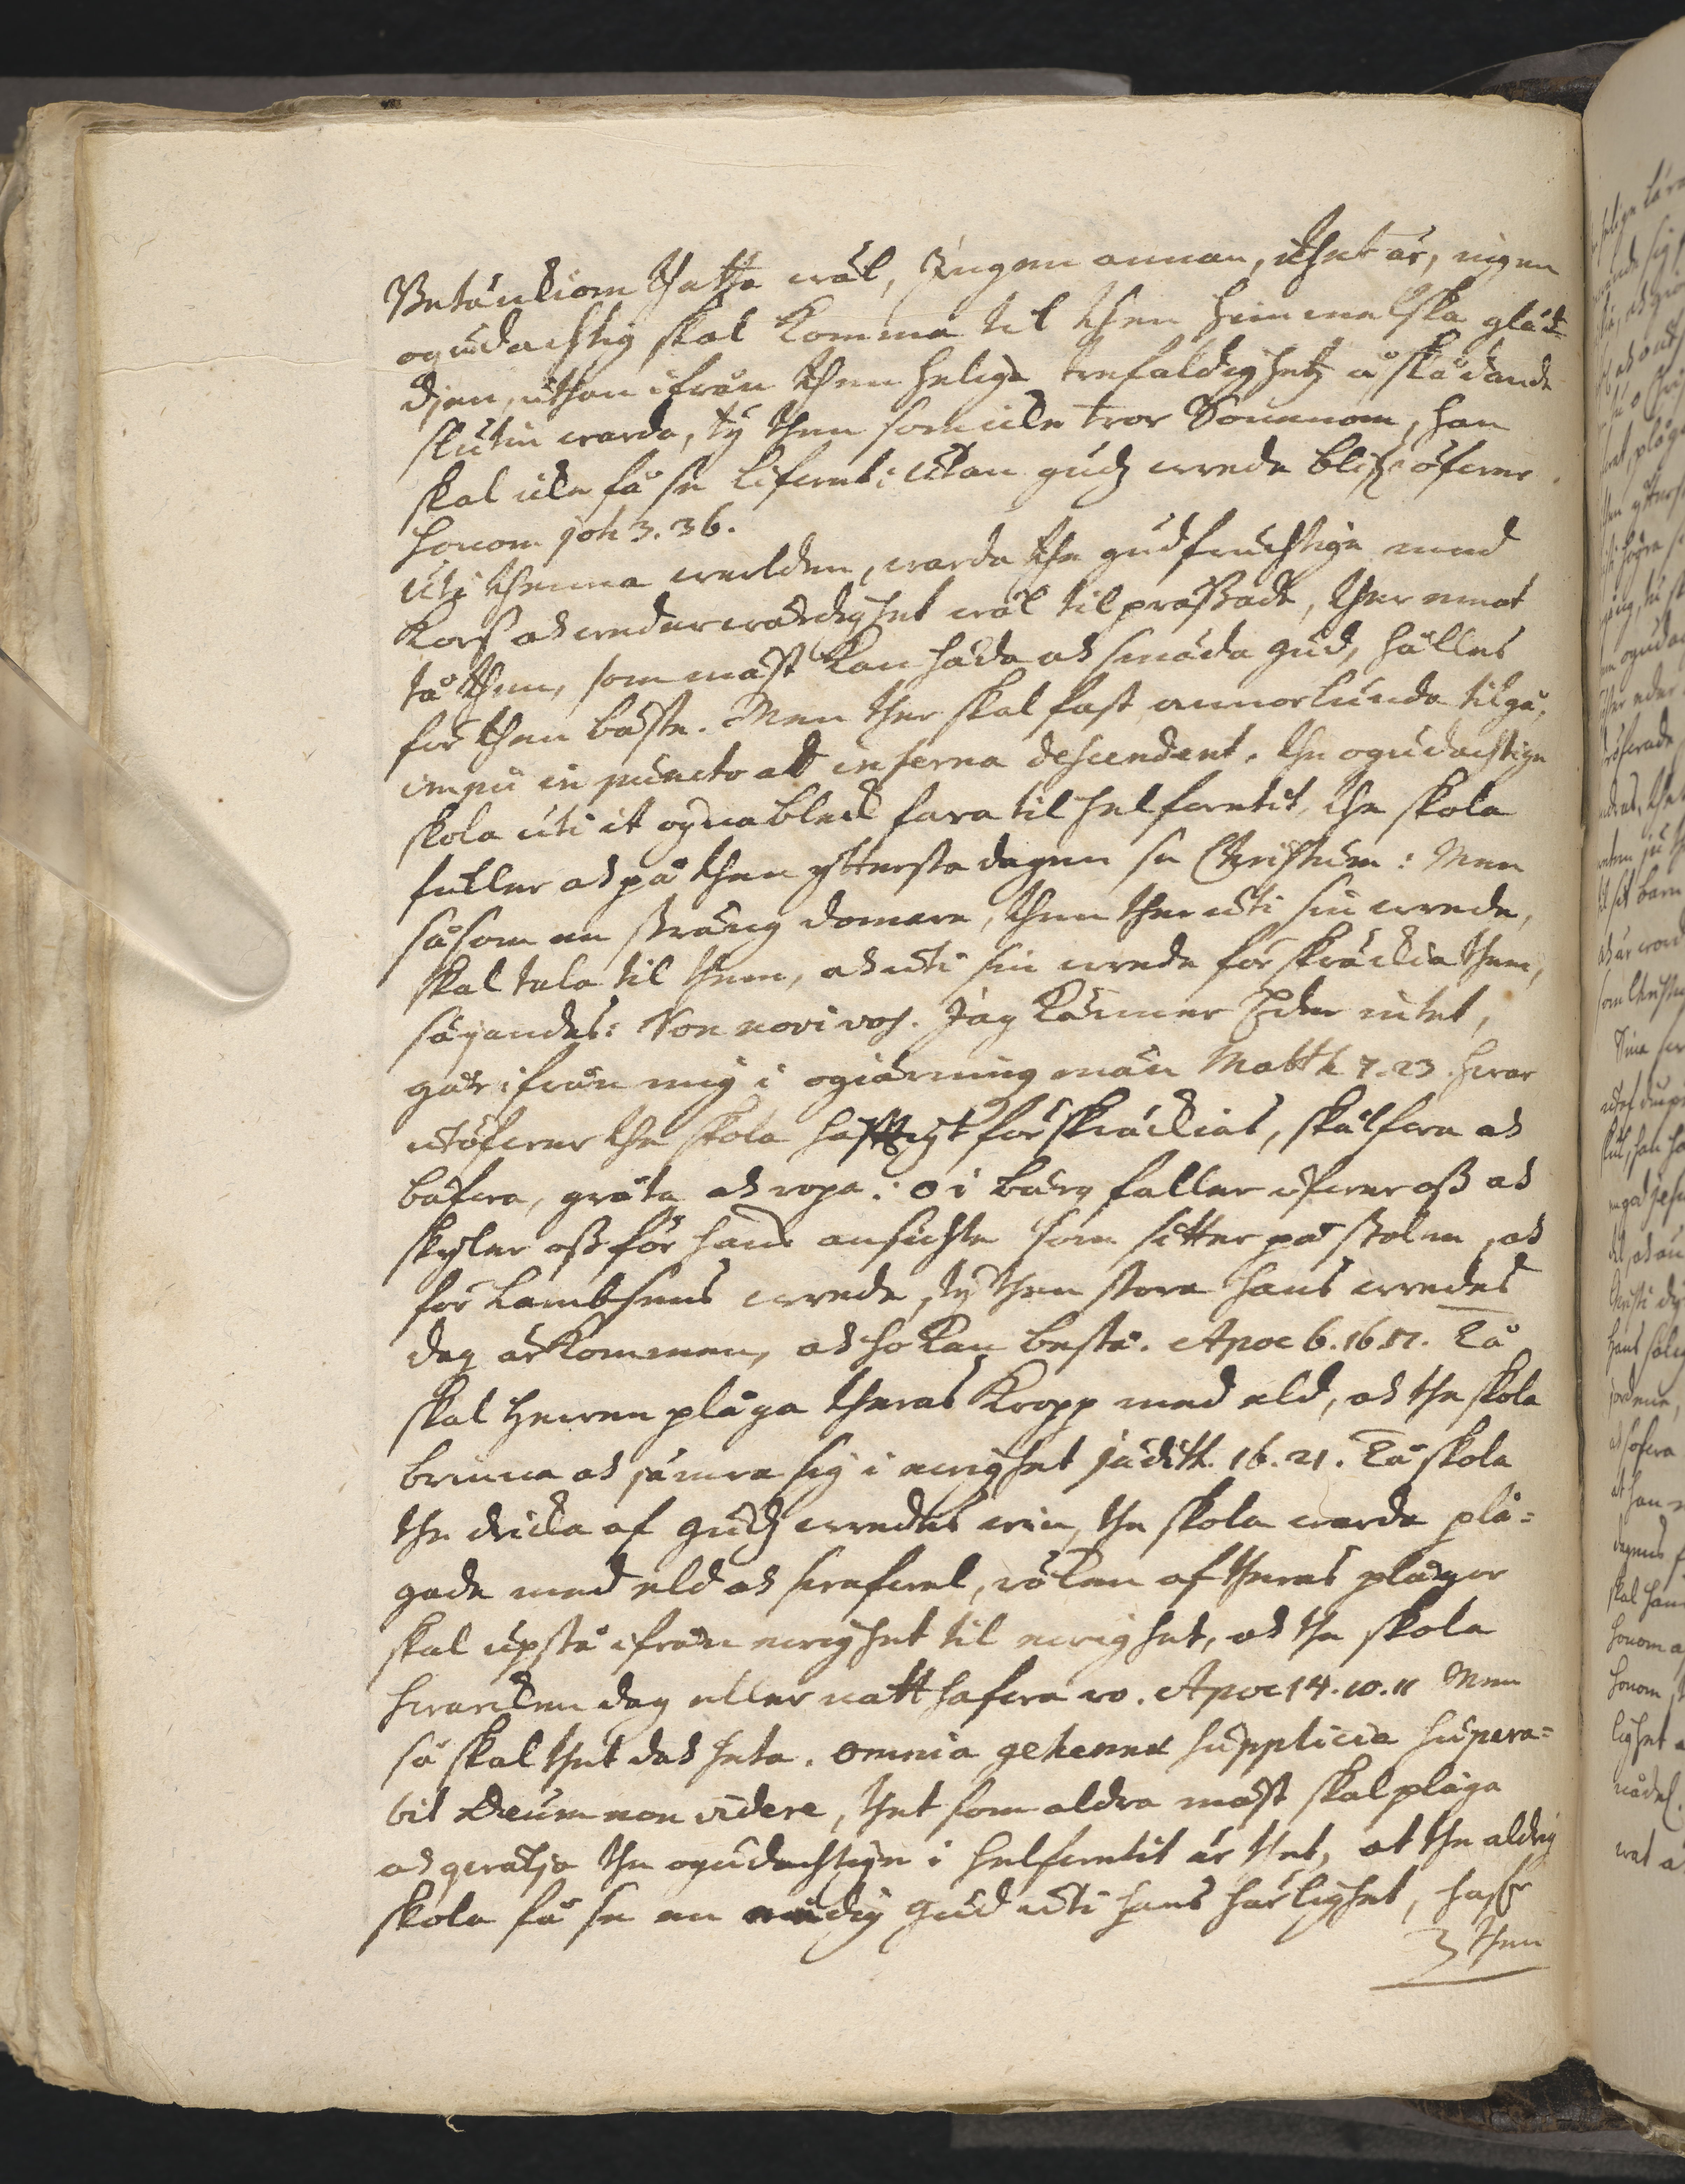 Betänckiom thetta wäl, Jngen annan, thet är, ingen
ogudachtig skal komma til then himmelska gläd-
djen, uthan ifrån then helige trefaldighetz åskådande
sluten warda, ty then som icke tror Sonenom, han
skal icke få se lifwet: Utan gudz wrede blifr öfwer
honom joh 3. 36.
Uti thenna werlden, warda the gudfruchtige med
kors och wederwärdighet wäl til prässade, ther emot
tå then, som mäst kan häda och smäda gud, hålles
för then bäste. Men ther skal fast annorlunda tilgå,
impii in puncto ad inferna descendent. the ogudachtige
skola uti it ognableck fara til helfwetit, the skola
fuller och på then yttersta dagen se Christum: Men
såsom en sträng domare, then ther uti sin wrede,
skal tala til them, och uti sin wrede förskräckia them,
säjandes: Non novi vos. Jag känner Eder intet,
går ifrån mig i ogiärningsmän Matth 7. 23. hwar
utöfwer the skola hefftigt förskräckias, skälfwa och
bäfwa, gråta och ropa: o i berg faller öfwer oss och
skyler oss för hans ansichte som sitter på stolen, och
för Lambsens wrede, ty then stora hans wredes
dag är kommen, och ho kan bestå. Apoc 6. 16. 17. Tå
skal Herren plåga theras kropp med eld, och the skola
brinna och jämra sig i ewighet judith. 16. 21. Tå skola
the dricka af gudz wredes win, the skola warda plå-
gade med eld och swafwel, röken af theras plågor
skal upstå ifrån ewighet til ewighet, och the skola
hwarcken dag eller natt hafwa ro. Apoc 14. 10. 11 Men
så skal thet doch heta. omnia gehennæ supplicia supera-
bit Deum non videre, thet som aldra mäst skal plåga
och qwälja the ogudachtige i helfwetit är thet, at the aldrig
skola få se en nådig gud uti hans härlighet,
then